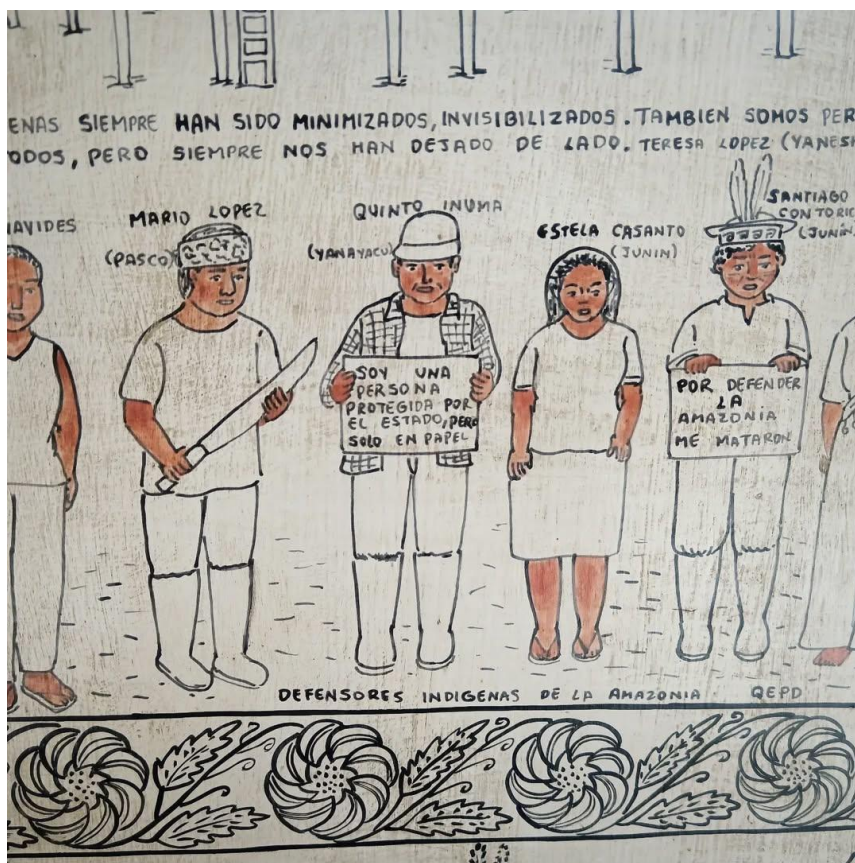 ENAS SIEMPRE HAN SIDO MINIMIZADOS, INVISIBILIZADOS. TAMBIEN SOMOS PER
ODOS, PERO SIEMPRE NOS HAN DEJADO DE LADO. TERESA LOPEZ (YANES
AVIDES
MARIO LOPEZ
(PASCO)
QUINTO INUMA
(YANAYACU)
ESTELA CASANTO
(JUNIN)
SANTIAGO
CONTORIC
(JUNÍN
SOY UNA
PERSONA
PROTEGIDA POR
EL ESTADO, PERO
SOLO EN PAPEL
POR DEFENDER
LA
AMAZONIA
ME MATARON
DEFENSORES INDIGENAS DE LA AMAZONIA QEPD